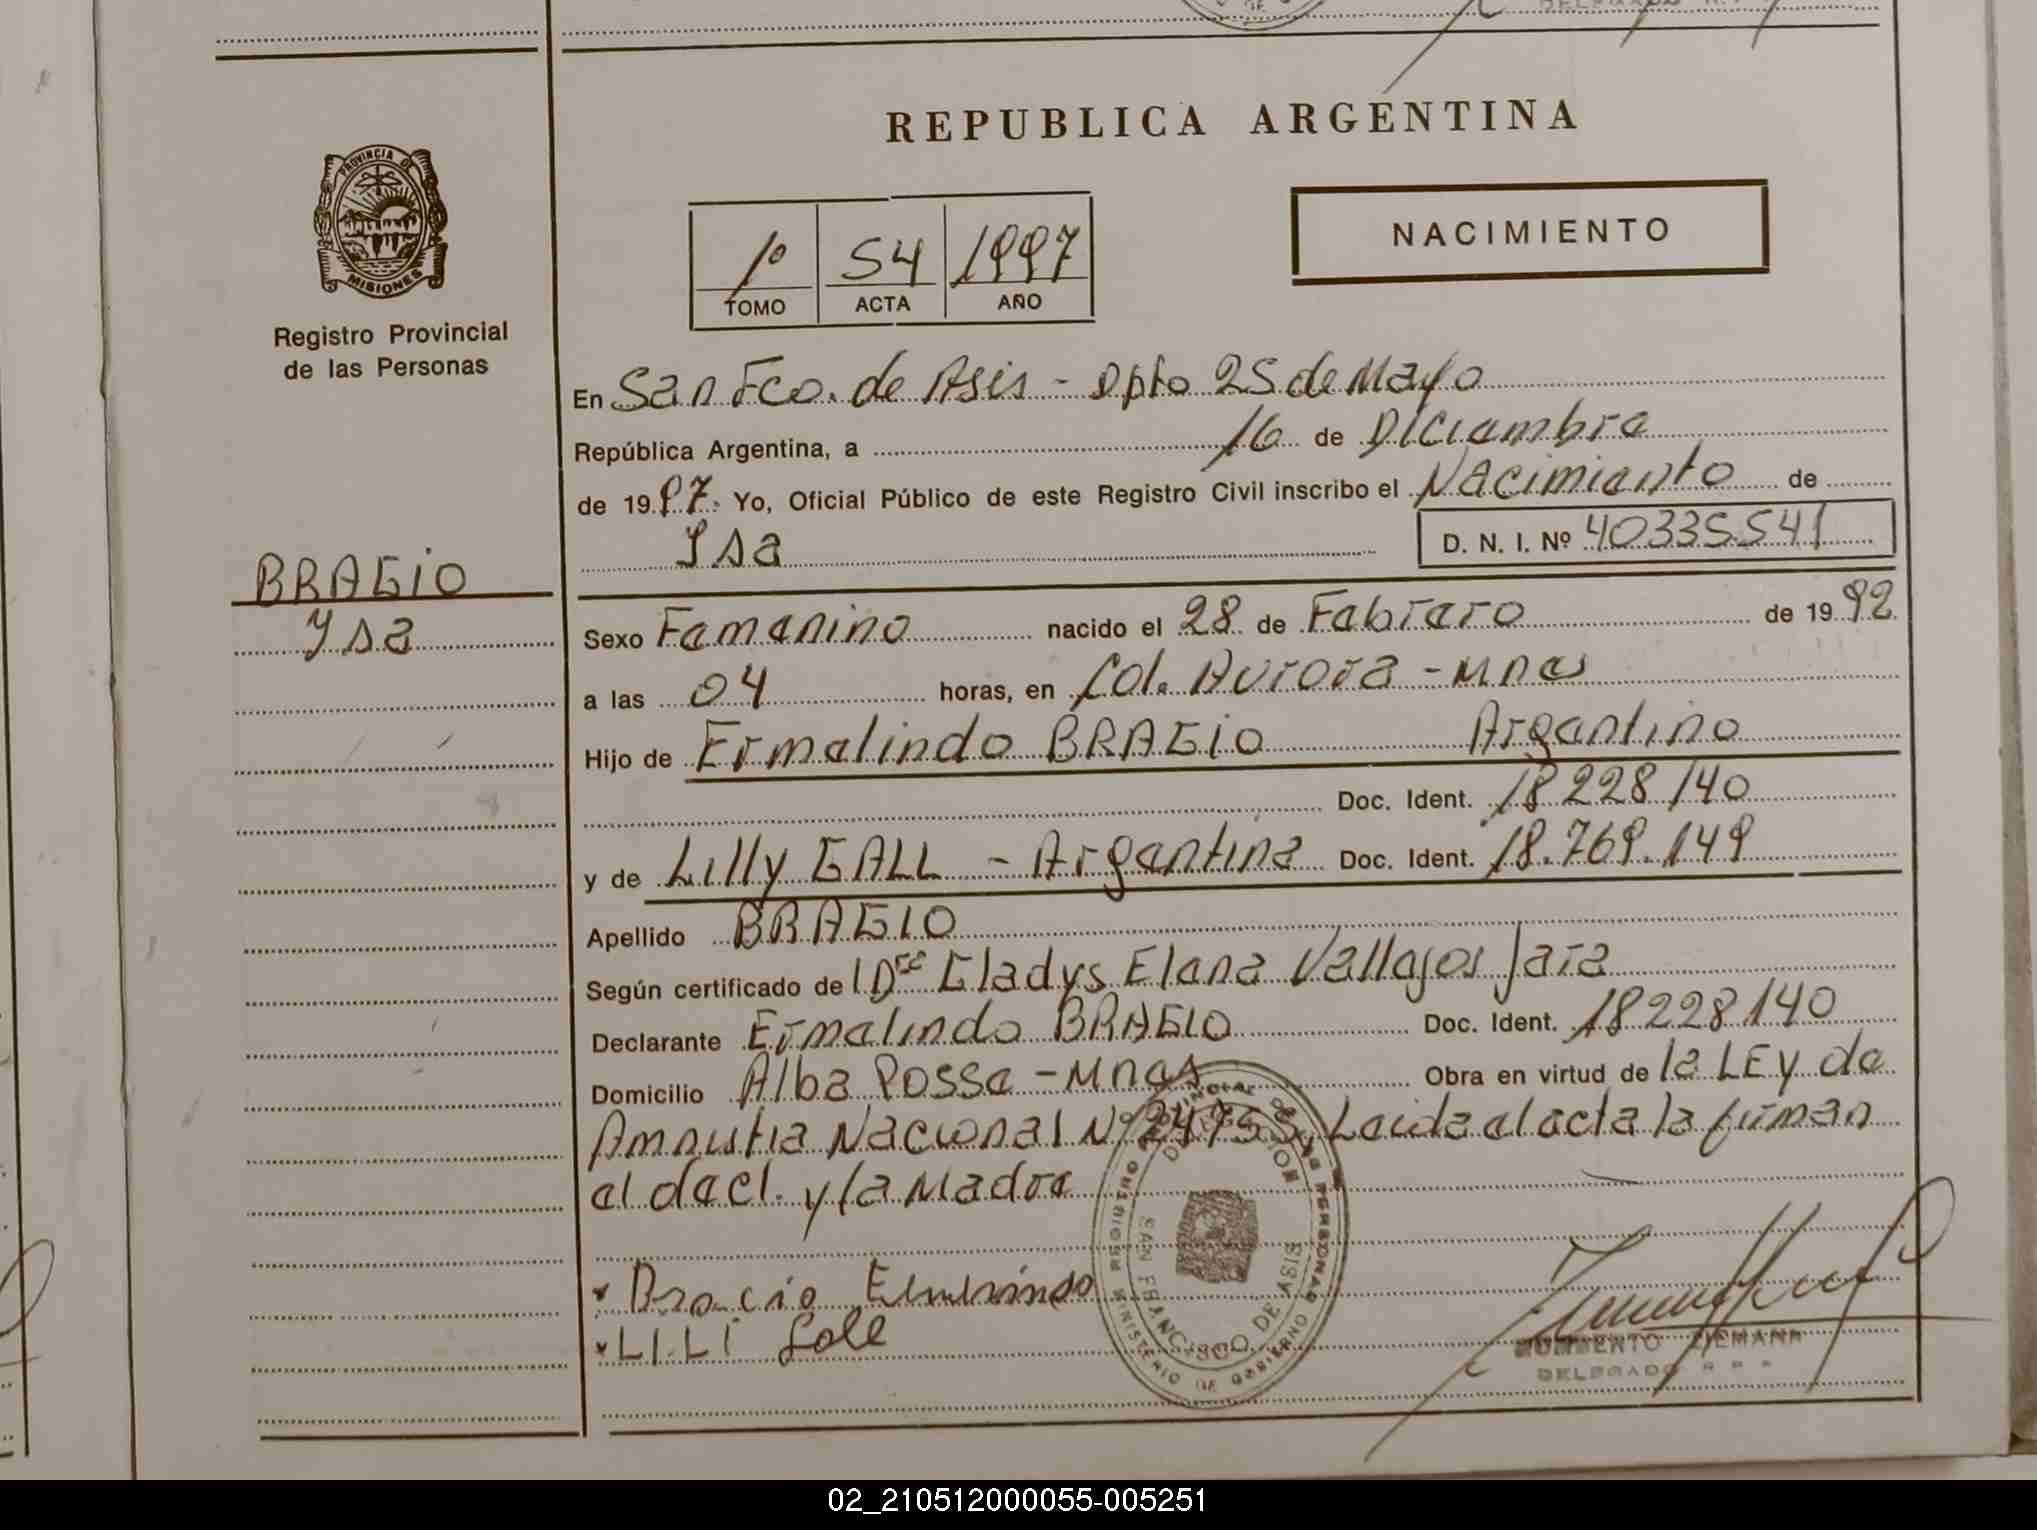 REPUBLICA ARGENTINA
PROVINCIA DE
MISIONES
Registro Provincial
de las Personas
1º 54 1997
TOMO ACTA AÑO
NACIMIENTO
En San Fco. de Asis - Dpto 25 de Mayo
República Argentina, a 16 de Diciembre
de 1997. Yo, Oficial Público de este Registro Civil inscribo el Nacimiento de
Ysa D. N. I. Nº 40335.541
BRAGIO
Ysa
Sexo Femenino nacido el 28 de Febrero de 1992
a las 04 horas, en Col. Aurora - Mnes
Hijo de Ermelindo BRAGIO Argentino
Doc. Ident. 18 228 140
y de Lilly GALL - Argentina Doc. Ident. 18.769.149
Apellido BRAGIO
Según certificado de Gladys Elena Vallejos Jara
Declarante Ermelindo BRAGIO Doc. Ident. 18228140
Domicilio Alba Posse - Mnes Obra en virtud de la LEY de
Amnistia Nacional Nº 24755, Leida el acta la firman
el decl. y la Madre
LILI
SAN FRANCISCO DE ASIS
MINISTERIO DE GOBIERNO
HUMBERTO ZIEMANN
DELEGADO R P P
02_210512000055-005251